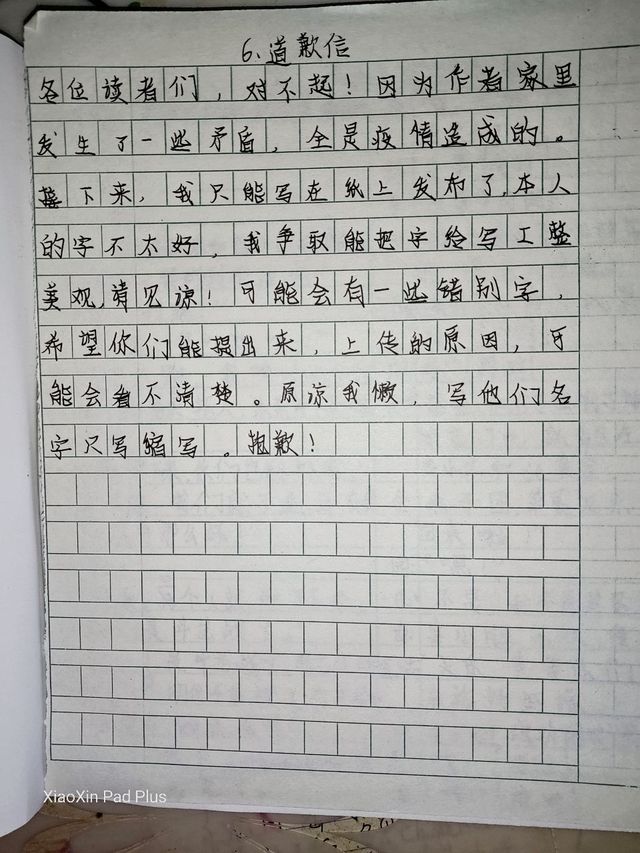 6.道歉信
各位读者们，对不起！因为作者家里
发生了一些矛盾，全是疫情造成的。
接下来，我只能写在纸上发布了，本人
的字不太好，我争取能把字给写工整
美观，请见谅！可能会有一些错别字，
希望你们能提出来，上传的原因，可
能会看不清楚。原凉我懒，写他们名
字只写缩写。抱歉！
XiaoXin Pad Plus